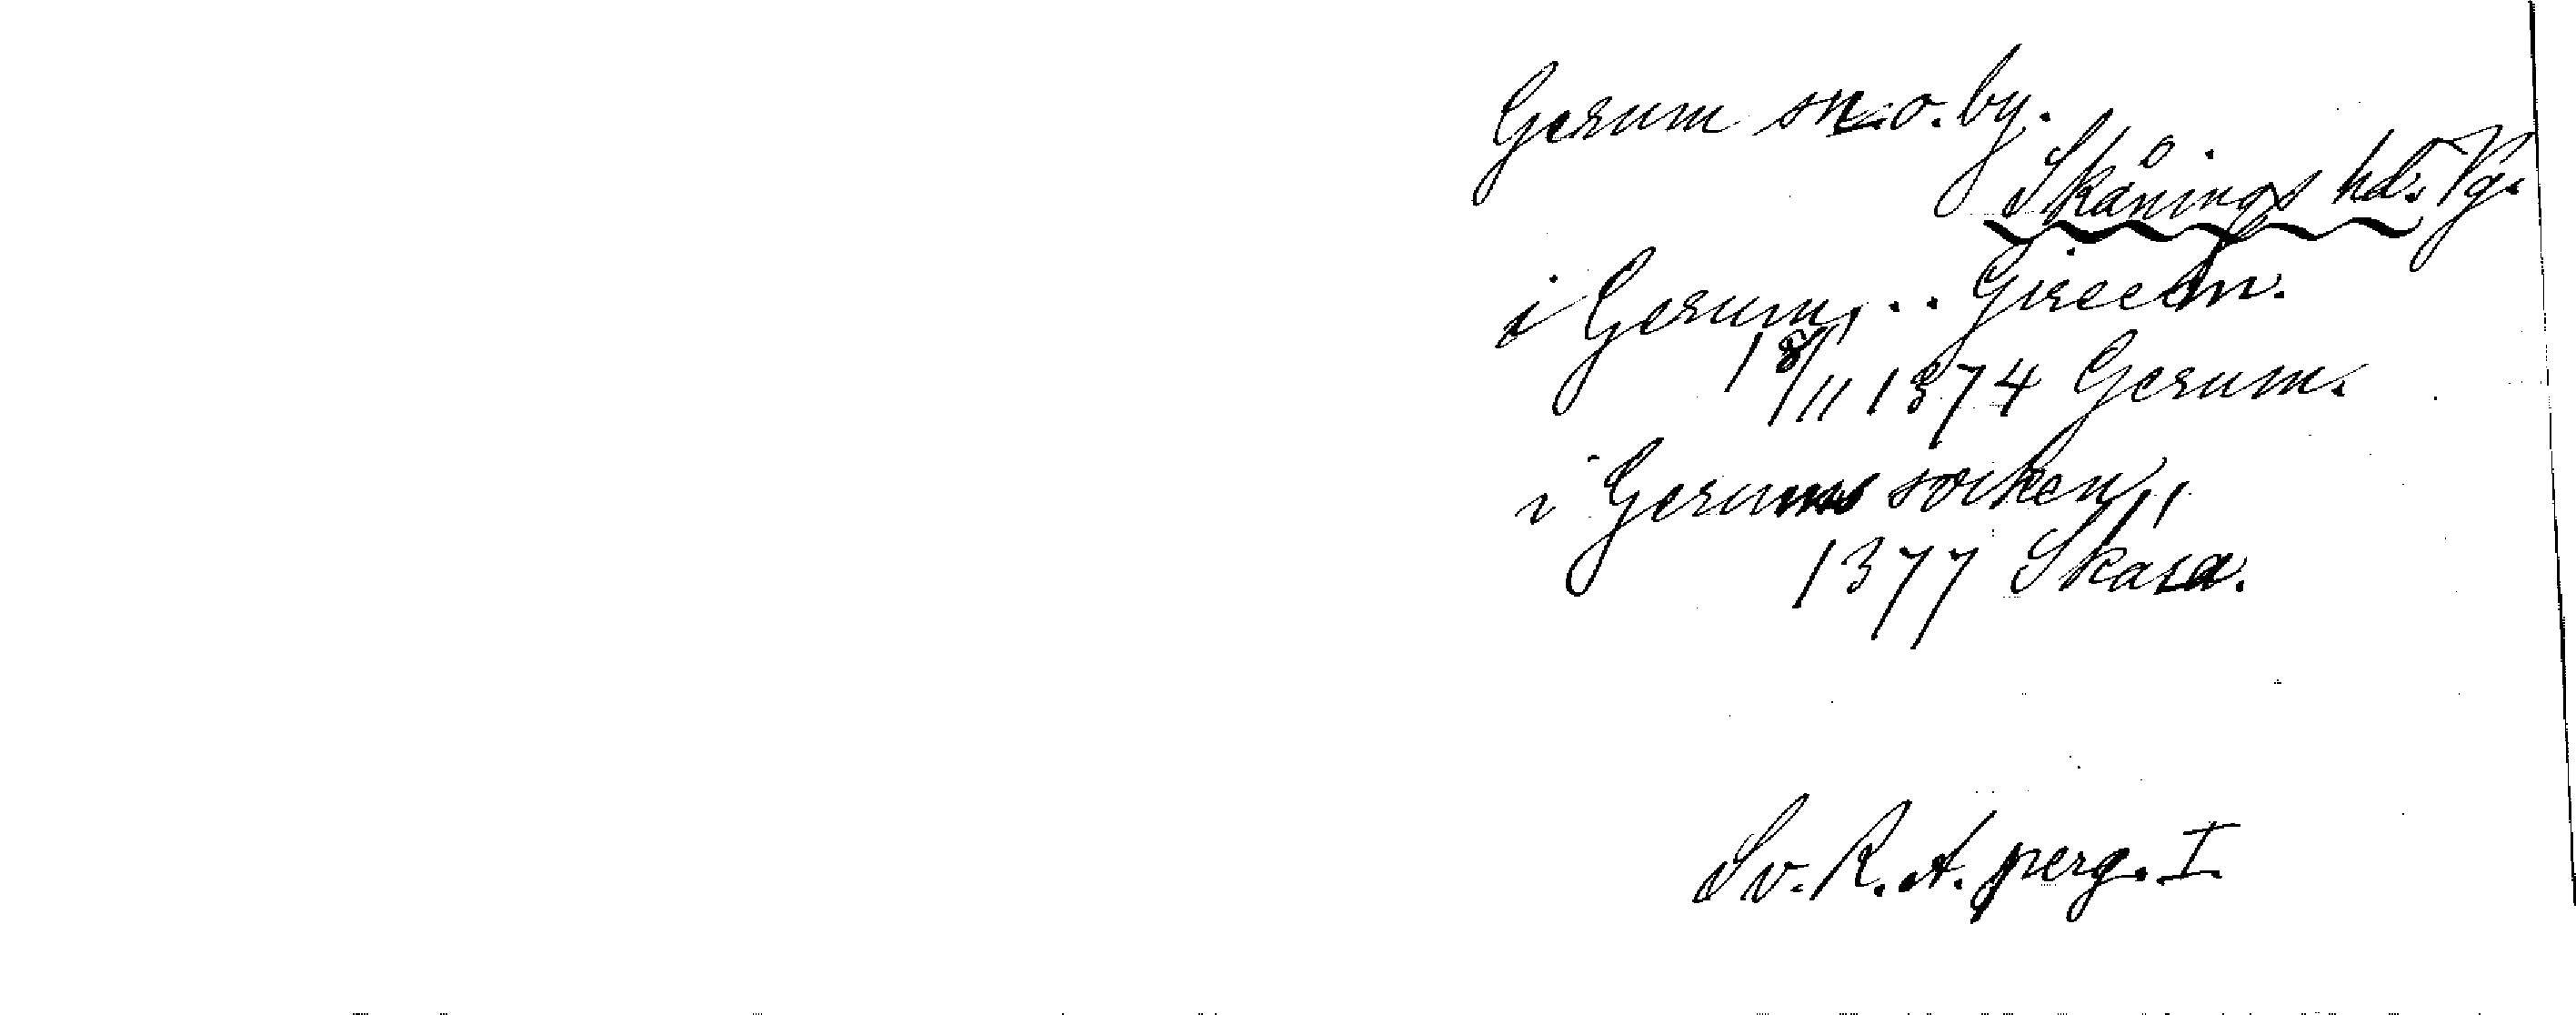 Gerum sn o. by.
Skånings hd. Vg.
i Gerum, . . Gireem.
18/11 1374 Gerum.
i Gerums socken,,
1377 Skara.
Sv. R. A. perg. I.